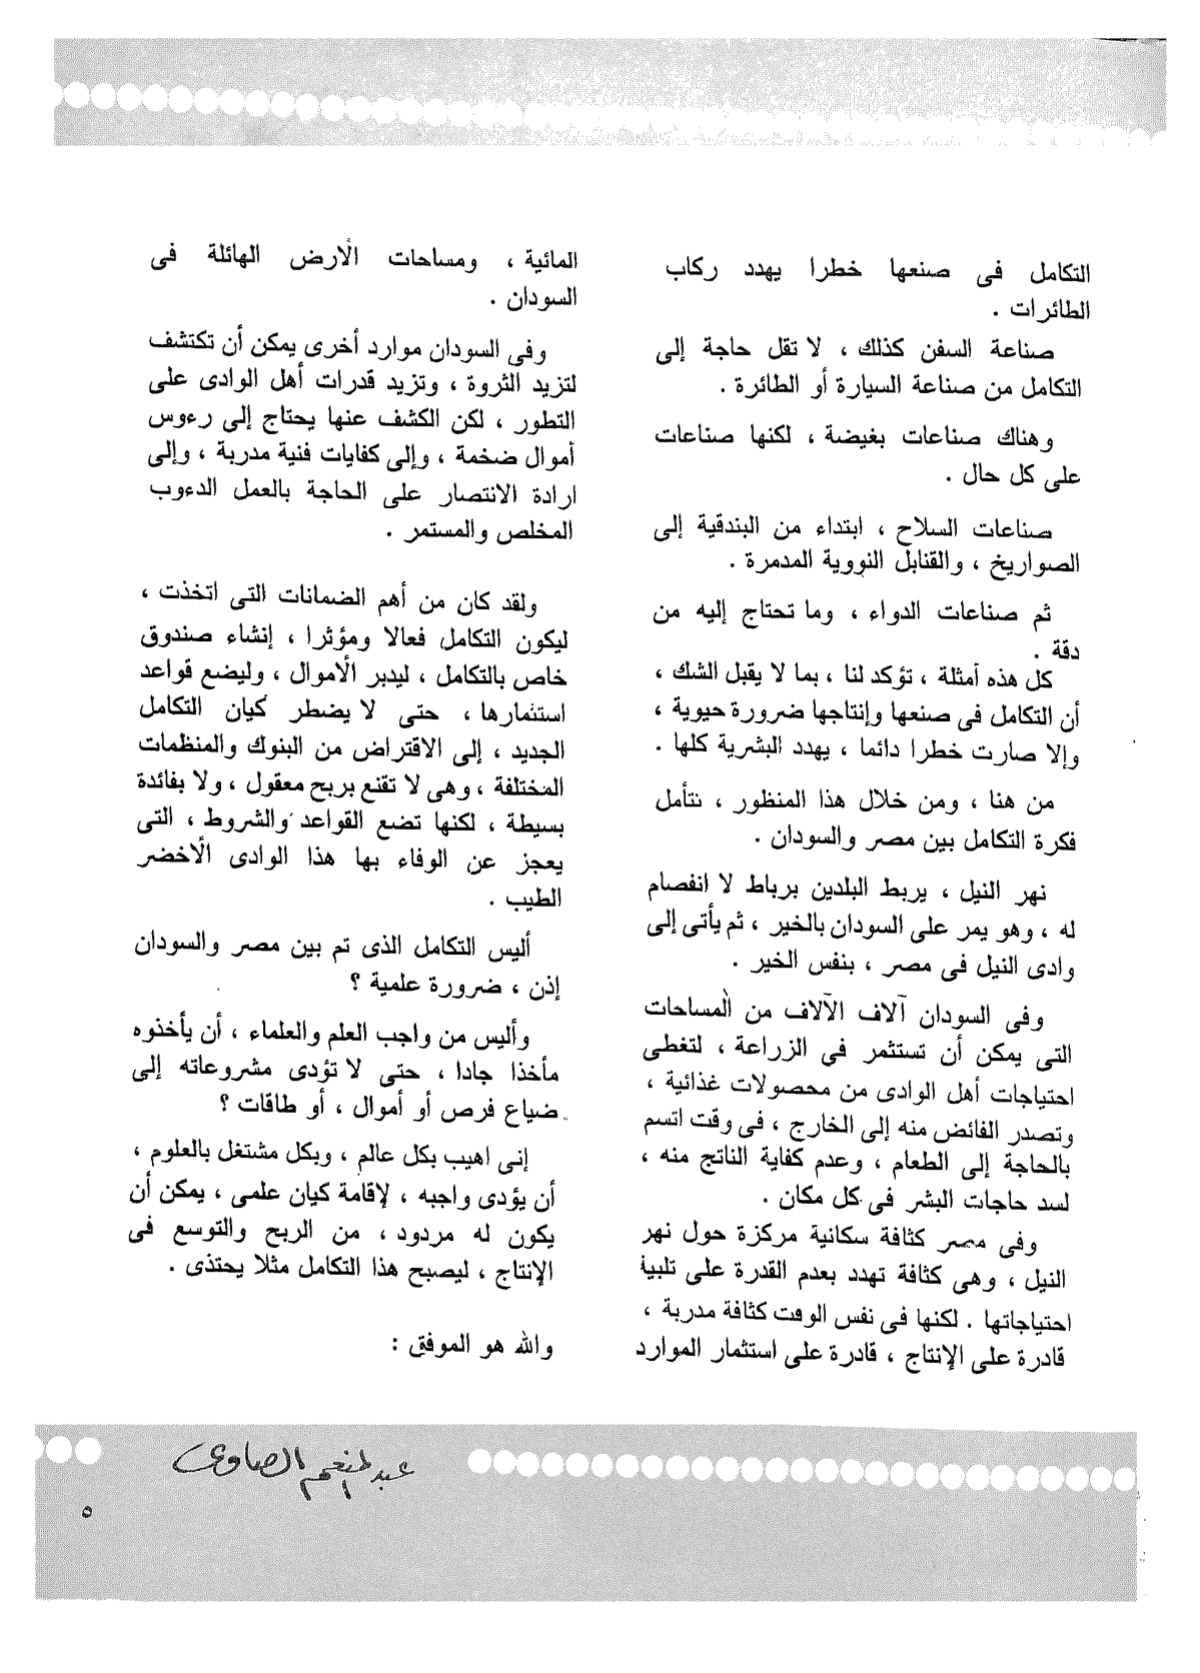 التكامل فى صنعها خطرا يهدد ركاب
الطائرات .
صناعة السفن كذلك ، لا تقل حاجة إلى
التكامل من صناعة السيارة أو الطائرة .
وهناك صناعات بغيضة ، لكنها صناعات
على كل حال .
صناعات السلاح ، ابتداء من البندقية إلى
الصواريخ ، والقنابل النووية المدمرة .
ثم صناعات الدواء ، وما تحتاج إليه من
دقة .
كل هذه أمثلة ، تؤكد لنا ، بما لا يقبل الشك ،
أن التكامل فى صنعها وإنتاجها ضرورة حيوية ،
وإلا صارت خطرا دائما ، يهدد البشرية كلها .
من هنا ، ومن خلال هذا المنظور ، نتأمل
فكرة التكامل بين مصر والسودان .
نهر النيل ، يربط البلدين برباط لا انفصام
له ، وهو يمر على السودان بالخير ، ثم يأتى إلى
وادى النيل فى مصر ، بنفس الخير .
وفى السودان آلاف الآلاف من المساحات
التى يمكن أن تستثمر في الزراعة ، لتغطى
احتياجات أهل الوادى من محصولات غذائية ،
وتصدر الفائض منه إلى الخارج ، فى وقت اتسم
بالحاجة إلى الطعام ، وعدم كفاية الناتج منه ،
لسد حاجات البشر فى كل مكان .
وفى مصر كثافة سكانية مركزة حول نهر
النيل ، وهى كثافة تهدد بعدم القدرة على تلبية
احتياجاتها . لكنها فى نفس الوقت كثافة مدربة ،
قادرة على الإنتاج ، قادرة على استثمار الموارد
المائية ، ومساحات الأرض الهائلة فى
السودان .
وفى السودان موارد أخرى يمكن أن تكتشف
لتزيد الثروة ، وتزيد قدرات أهل الوادى على
التطور ، لكن الكشف عنها يحتاج إلى رءوس
أموال ضخمة ، وإلى كفايات فنية مدربة ، وإلى
ارادة الانتصار على الحاجة بالعمل الدءوب
المخلص والمستمر .
ولقد كان من أهم الضمانات التى اتخذت ،
ليكون التكامل فعالا ومؤثرا ، إنشاء صندوق
خاص بالتكامل ، ليدبر الأموال ، وليضع قواعد
استثمارها ، حتى لا يضطر كيان التكامل
الجديد ، إلى الاقتراض من البنوك والمنظمات
المختلفة ، وهى لا تقنع بربح معقول ، ولا بفائدة
بسيطة ، لكنها تضع القواعد والشروط ، التى
يعجز عن الوفاء بها هذا الوادى الأخضر
الطيب .
أليس التكامل الذى تم بين مصر والسودان
إذن ، ضرورة علمية ؟
وأليس من واجب العلم والعلماء ، أن يأخذوه
مأخذا جادا ، حتى لا تؤدى مشروعاته إلى
ضياع فرص أو أموال ، أو طاقات ؟
إنى اهيب بكل عالم ، وبكل مشتغل بالعلوم ،
أن يؤدى واجبه ، لإقامة كيان علمى ، يمكن أن
يكون له مردود ، من الربح والتوسع فى
الإنتاج ، ليصبح هذا التكامل مثلا يحتذى .
والله هو الموفق :
عبد المنعم الصاوى
٥